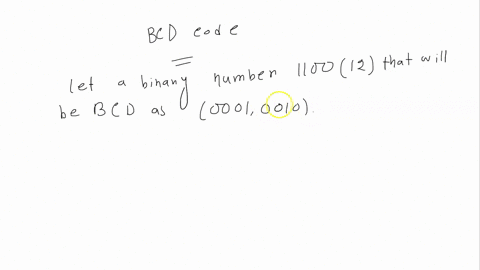 BCD code
let a binary number 1100 (12) that will
be BCD as (0001, 0010).